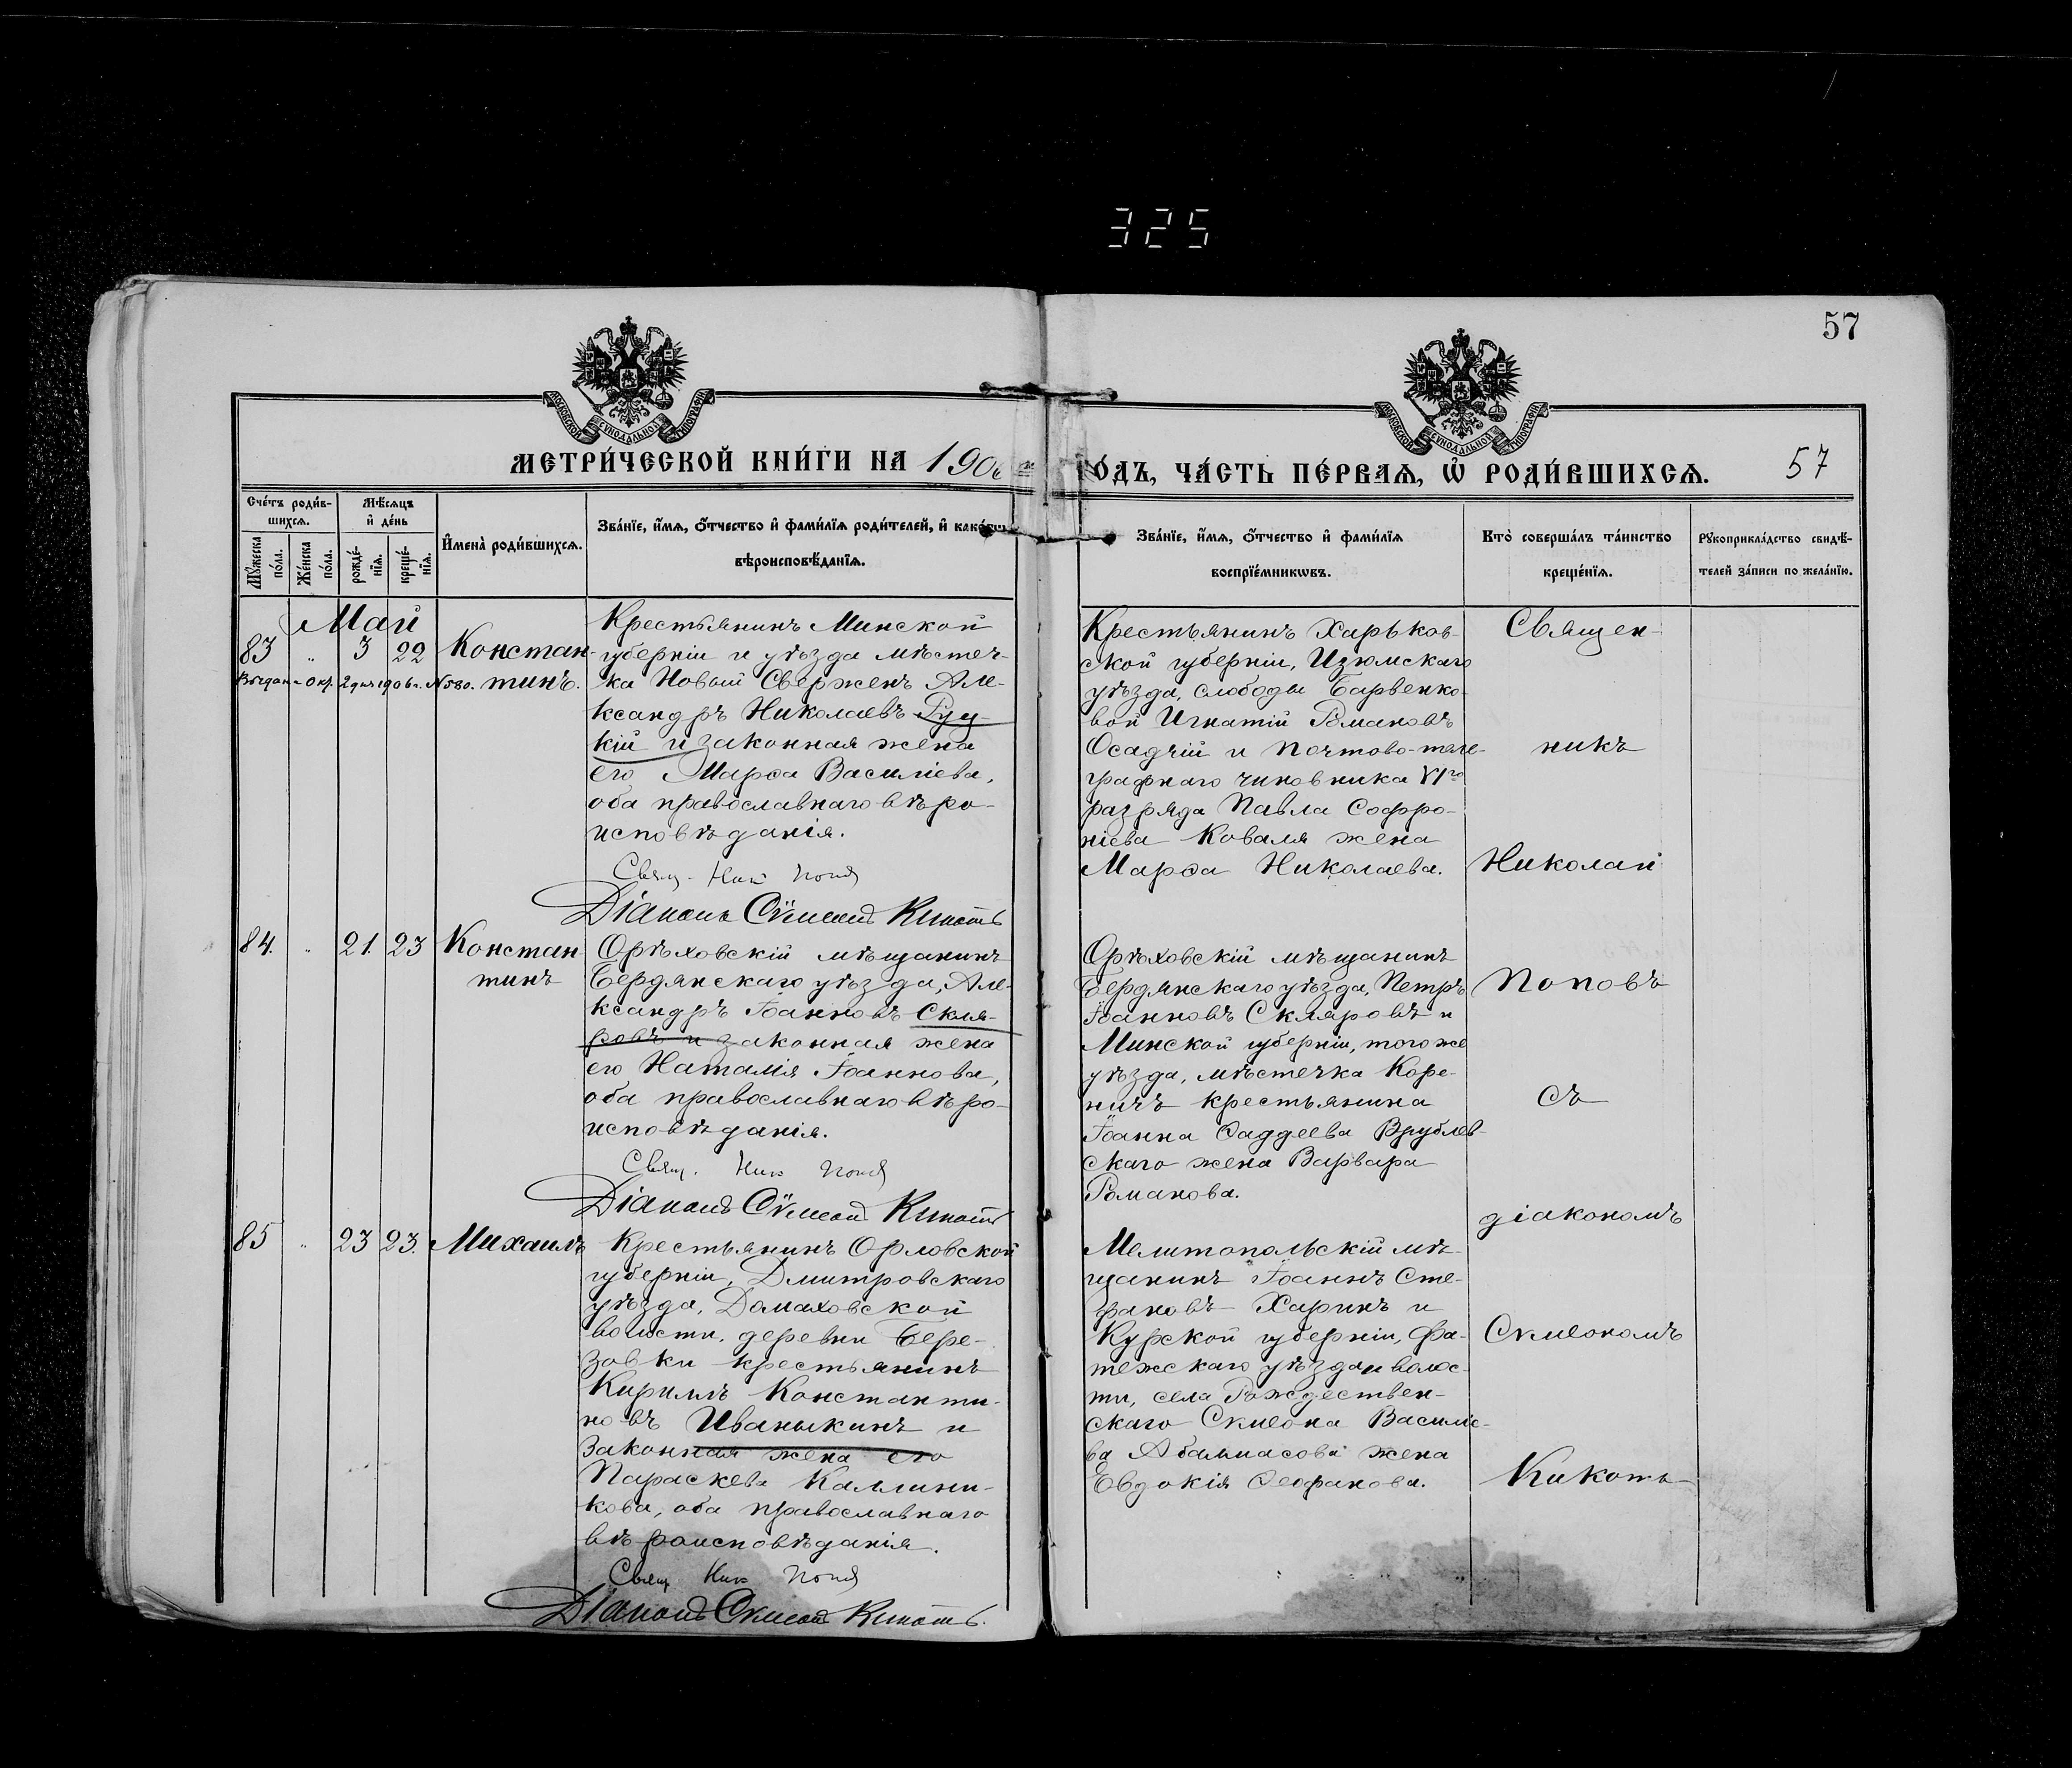 325
57
МОСКОВСКОЙ СѴНОДАЛЬНОЙ ТИПОГРАФІИ
МОСКОВСКОЙ СѴНОДАЛЬНОЙ ТИПОГРАФІИ
МЕТРИ́ЧЕСКОЙ КНИ́ГИ НА 190
ОДЪ, ЧА́СТЬ ПЕ́РВАѦ, Ѡ҆ РОДИ́ВШИХСѦ.
57
Сче́тъ роди́в-
шихсѧ.
Мѣ́сѧцъ
и҆ де́нь
Мꙋ́жеска по́ла.
Же́нска по́ла.
рожде́-
нїѧ.
креще́-
нїѧ.
И҆мена̀ роди́вшихсѧ.
Зва́нїе, и҆́мѧ, ѻ҆́тчество и҆ фами́лїѧ роди́телей, и҆ како́гѡ
вѣроисповѣ́данїѧ.
Зва́нїе, и҆́мѧ, ѻ҆́тчество и҆ фами́лїѧ
воспрїе́мникѡвъ.
Кто̀ соверша́лъ та́инство
креще́нїѧ.
Рꙋкоприкла́дство свидѣ́-
телей за́писи по жела́нїю.
Май
83 " 3 22 Констан-
тинъ.
Выдана Окт. 2 дня 1906 г. № 580.
Крестьянинъ Минской
губерніи и уѣзда мѣстеч-
ка Новый Сверженъ Але-
ксандръ Николаевъ Руц-
кій и законная жена
его Марѳа Василіева,
оба православнаго вѣро-
исповѣданія.
Свящ. Ник Попов
Діаконъ Сѵмеонъ Кикоть
Крестьянинъ Харьков-
ской губерніи, Изюмскаго
уѣзда, слободы Барвенко-
вой Игнатій Романовъ
Осадчій и почтово-теле-
графнаго чиновника VIго
разряда Павла Софро-
ніева Коваля жена
Марѳа Николаева.
Священ-
никъ
Николай
84. " 21. 23 Констан
тинъ
Орѣховскій мѣщанинъ
Бердянскаго уѣзда, Але-
ксандръ Іоанновъ Скля-
ровъ и законная жена
его Наталія Іоаннова,
оба православнаго вѣро-
исповѣданія.
Свящ. Ник Попов
Діаконъ Сѵмеонъ Кикоть
Орѣховскій мѣщанинъ
Бердянскаго уѣзда, Петръ
Іоанновъ Скляровъ и
Минской губерніи, того же
уѣзда, мѣстечка Коре-
личъ крестьянина
Іоанна Ѳаддеева Врублев-
скаго жена Варвара
Романова.
Поповъ
съ
діакономъ
85 " 23 23. Михаилъ
Крестьянинъ Орловской
губерніи, Дмитровскаго
уѣзда, Домаховской
волости, деревни Бере-
зовки крестьянинъ
Кириллъ Константи-
новъ Иванькинъ и
законная жена его
Параскева Каллини-
кова, оба православнаго
вѣроисповѣданія.
Свящ Ник Попов
Діаконъ Сѵмеонъ Кикоть.
Мелитопольскій мѣ-
щанинъ Іоаннъ Сте-
фановъ Харинъ и
Курской губерніи, Фа-
тежскаго уѣзда и волос-
ти, села Рождествен-
скаго Сѵмеона Василіе-
ва жена
Евдокія Ѳеофанова.
Сѵмеономъ
Кикоть